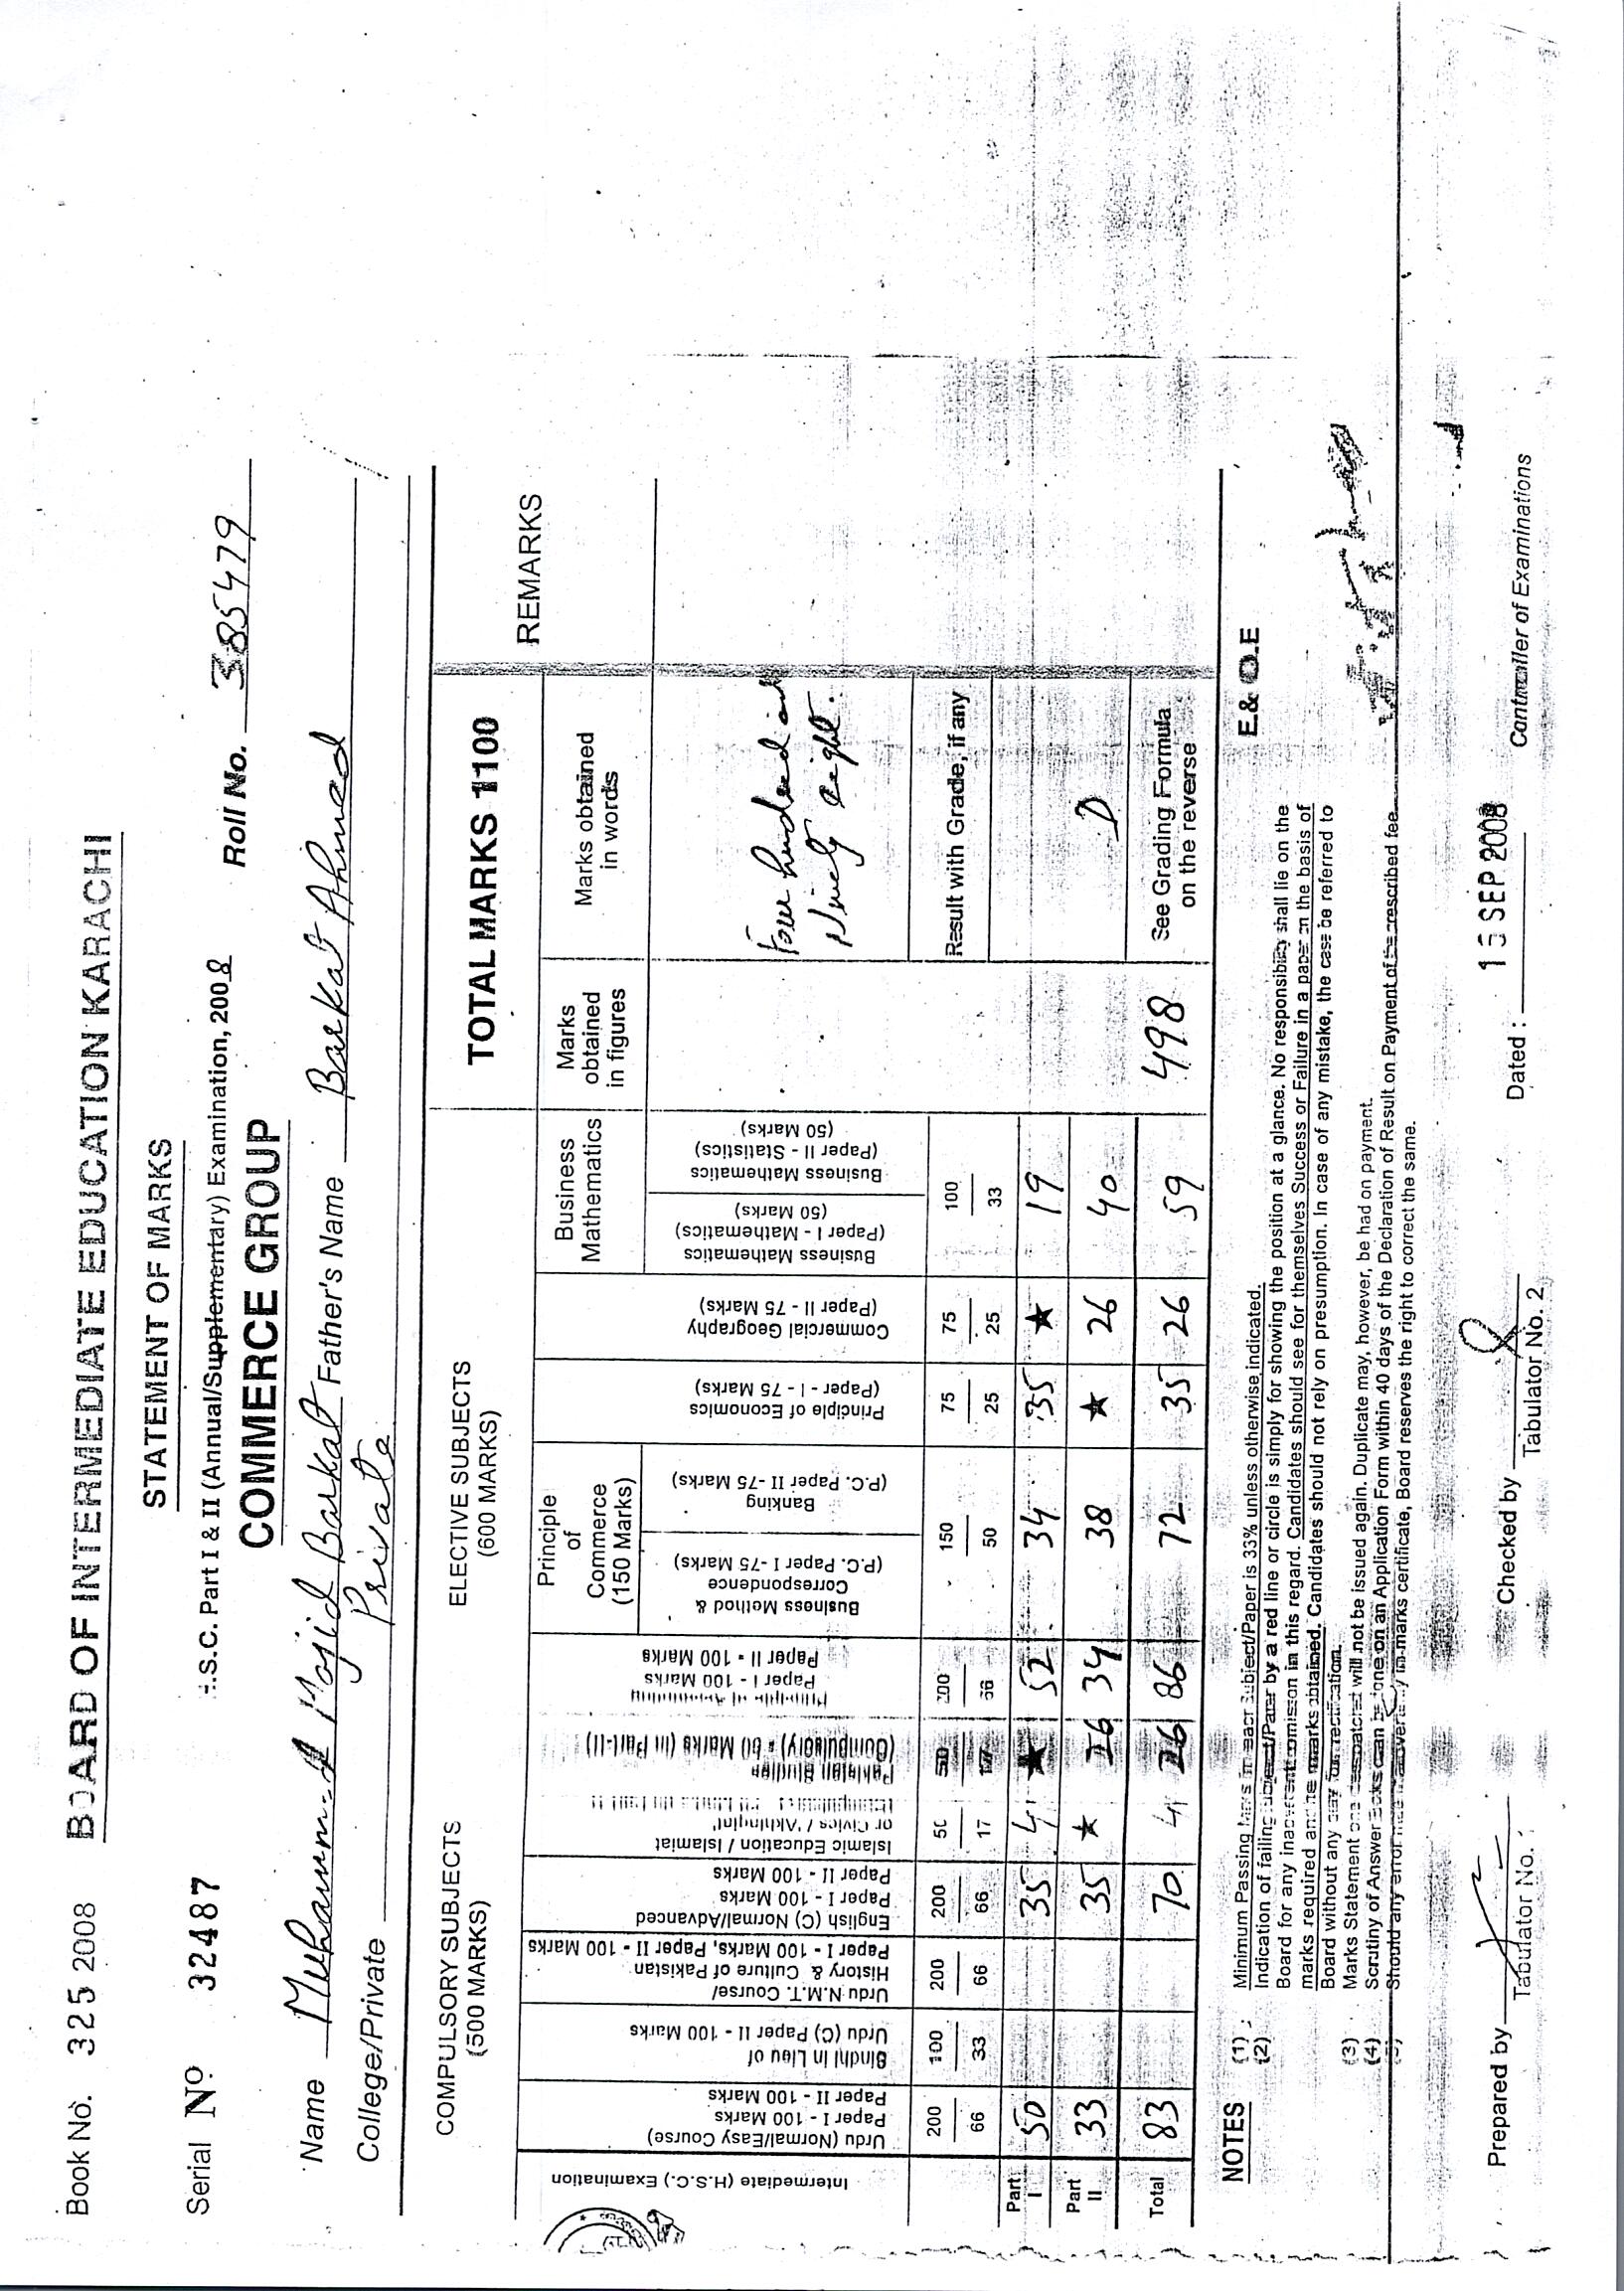 Book No. 325 2008 BOARD OF INTERMEDIATE EDUCATION KARACHI
STATEMENT OF MARKS
Serial Nº 32487 H.S.C. Part I & II (Annual/Supplementary) Examination, 2008 Roll No. 385479
COMMERCE GROUP
Name Muhammad Majid Barkat Father's Name Barkat Ahmed
College/Private Private
COMPULSORY SUBJECTS
(500 MARKS)
ELECTIVE SUBJECTS
(600 MARKS)
TOTAL MARKS 1100
REMARKS
Intermediate (H.S.C.) Examination
Urdu (Normal/Easy Course)
Paper I - 100 Marks
Paper II - 100 Marks
Sindhi In Lieu of
Urdu (C) Paper II - 100 Marks
Urdu N.M.T. Course/
History & Culture of Pakistan
Paper I - 100 Marks, Paper II - 100 Marks
English (C) Normal/Advanced
Paper I - 100 Marks
Paper II - 100 Marks
Islamic Education / Islamiat
or Civics /
Pakistan Studies
(Compulsory) - 50 Marks (in Part-II)
Principle of Accounting
Paper I - 100 Marks
Paper II - 100 Marks
Principle
of
Commerce
(150 Marks)
Business Method &
Correspondence
(P.C. Paper I -75 Marks)
Banking
(P.C. Paper II -75 Marks)
Principle of Economics
(Paper - I - 75 Marks)
Commercial Geography
(Paper II - 75 Marks)
Business
Mathematics
Business Mathematics
(Paper I - Mathematics)
(50 Marks)
Business Mathematics
(Paper II - Statistics)
(50 Marks)
Marks
obtained
in figures
Marks obtained
in words
Four hundred and
Ninety eight.
200 100 200 200 50 50 200 150 75 75 100
66 33 66 66 17 17 66 50 25 25 33
Result with Grade, if any
Part I 50 35 41 ★ 52 34 35 ★ 19
Part II 33 35 ★ 26 34 38 ★ 26 40 D
Total 83 70 41 26 86 72 35 26 59 498 See Grading Formula
on the reverse
NOTES (1) Minimum Passing Marks in each Subject/Paper is 33% unless otherwise indicated. E. & O.E
(2) Indication of failing subject/Paper by a red line or circle is simply for showing the position at a glance. No responsibility shall lie on the
Board for any inadvertent omission in this regard. Candidates should see for themselves Success or Failure in a paper on the basis of
marks required and the marks obtained. Candidates should not rely on presumption. In case of any mistake, the case be referred to
Board without any for rectification.
(3) Marks Statement once despatched will not be issued again. Duplicate may, however, be had on payment.
(4) Scrutiny of Answer Books can be done on an Application Form within 40 days of the Declaration of Result on Payment of the prescribed fee.
Should any error made inadvertently in marks certificate, Board reserves the right to correct the same.
Prepared by
Tabulator No.
Checked by
Tabulator No. 2
Dated : SEP 2008
Controller of Examinations